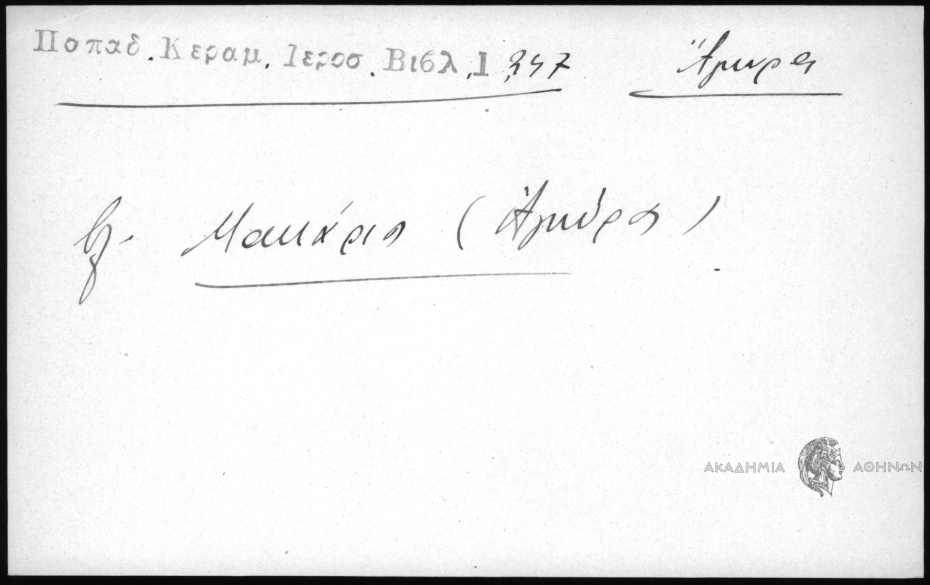 Παπαδ. Κεραμ. Ιεροσ. Βιβλ. 1, 247 Ἄγκυρα
βλ. Μακάριος (Ἀγκύρας)
ΑΚΑΔΗΜΙΑ ΑΘΗΝΩΝ